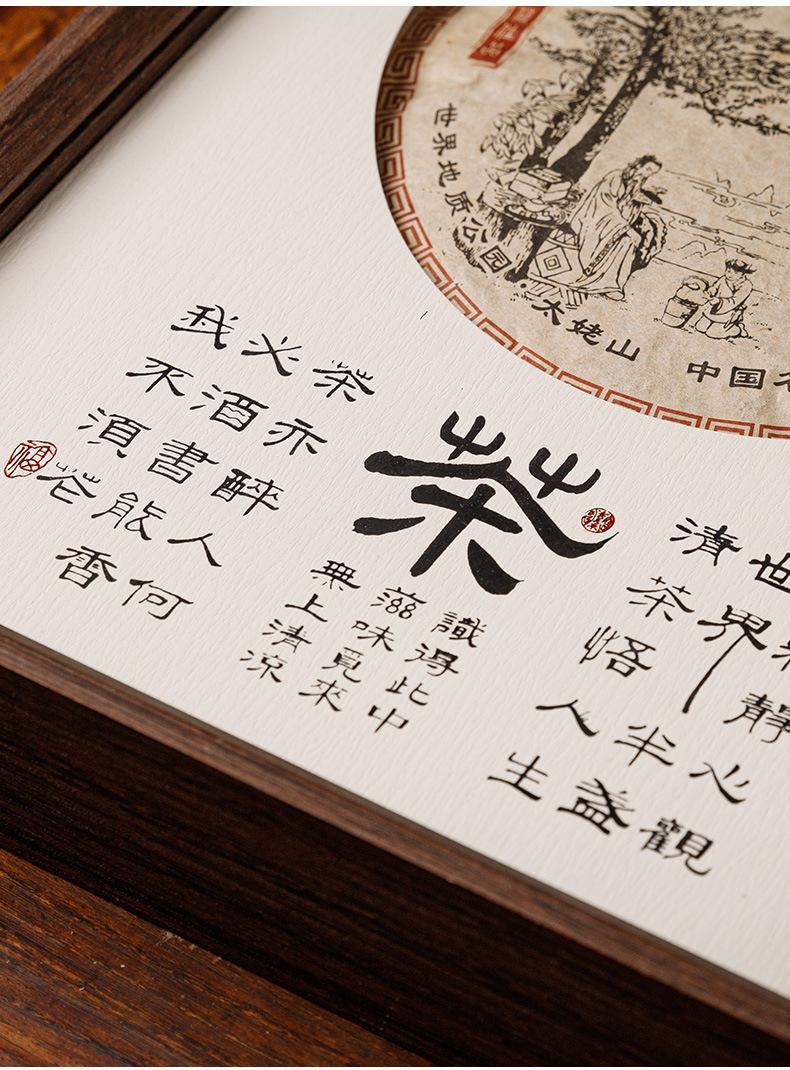 世界地质公园·太姥山
中国
靜心觀
世界半盞
清茶悟人生
茶
識得此中
滋味覓來
無上清涼
茶亦醉人何
必酒書能香
我不須花
福